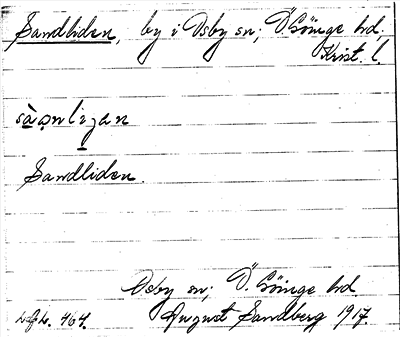 Sandliden, by i Osby sn; Ö. Göinge hd.
Krist. l.
sàạnlịzan
Sandliden.
Osby sn; Ö. Göinge hd.
464. August Sandberg 1917.